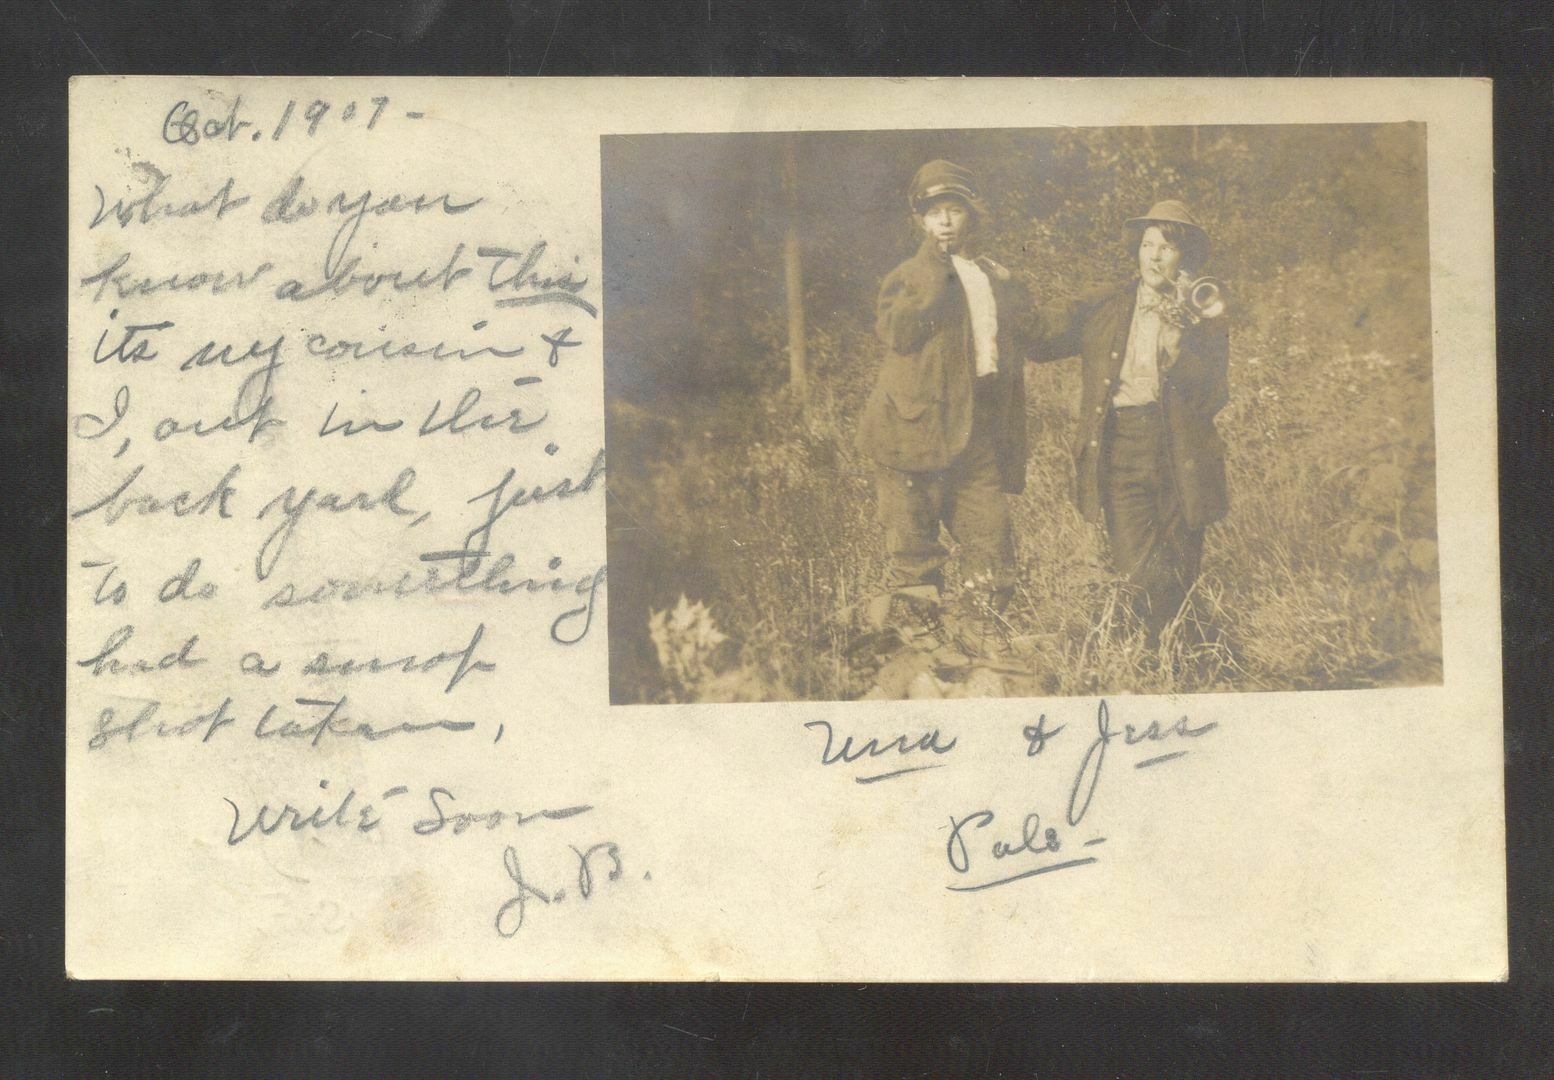 Oct. 1907-
What do you
know about this
its my cousin &
I, out in the
back yard, just
to do something
had a snap
shot taken,
Write Soon
J. B.
Una & Jess
Pals-